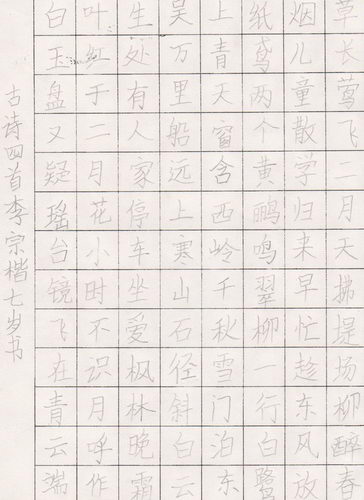 草长莺飞二月天拂提场柳醉春
烟儿童散学归来早忙趁东风放
纸鸢两个黄鹂鸣翠柳一行白鹭
上青天窗含西岭千秋雪门泊东
吴万里船远上寒山石径斜白云
生处有人家停车坐爱枫林晚霜
叶红于二月花小时不识月呼作
白玉盘又疑瑶台镜飞在青云端
古诗四首李宗楷七岁书